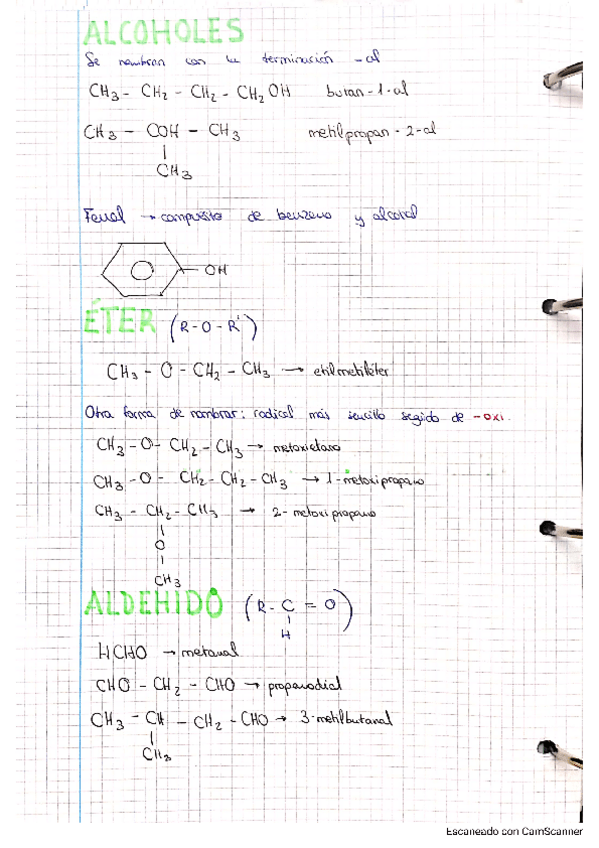 ALCOHOLES
Se nombran con la terminación -ol
CH3 - CH2 - CH2 - CH2OH butan-1-ol
CH3 - COH - CH3 metilpropan-2-ol
|
CH3
Fenol → compuesto de benceno y alcohol
-OH
ÉTER (R-O-R')
CH3 - O - CH2 - CH3 → etilmetiléter
Otra forma de nombrar: radical más sencillo segido de -oxi.
CH3 - O - CH2 - CH3 → metoxietano
CH3 - O - CH2 - CH2 - CH3 → 1-metoxipropano
CH3 - CH2 - CH3 → 2-metoxipropano
|
O
|
CH3
ALDEHIDO (R - C = O)
|
H
HCHO → metanal
CHO - CH2 - CHO → propanodial
CH3 - CH - CH2 - CHO → 3-metilbutanal
|
CH3
Escaneado con CamScanner